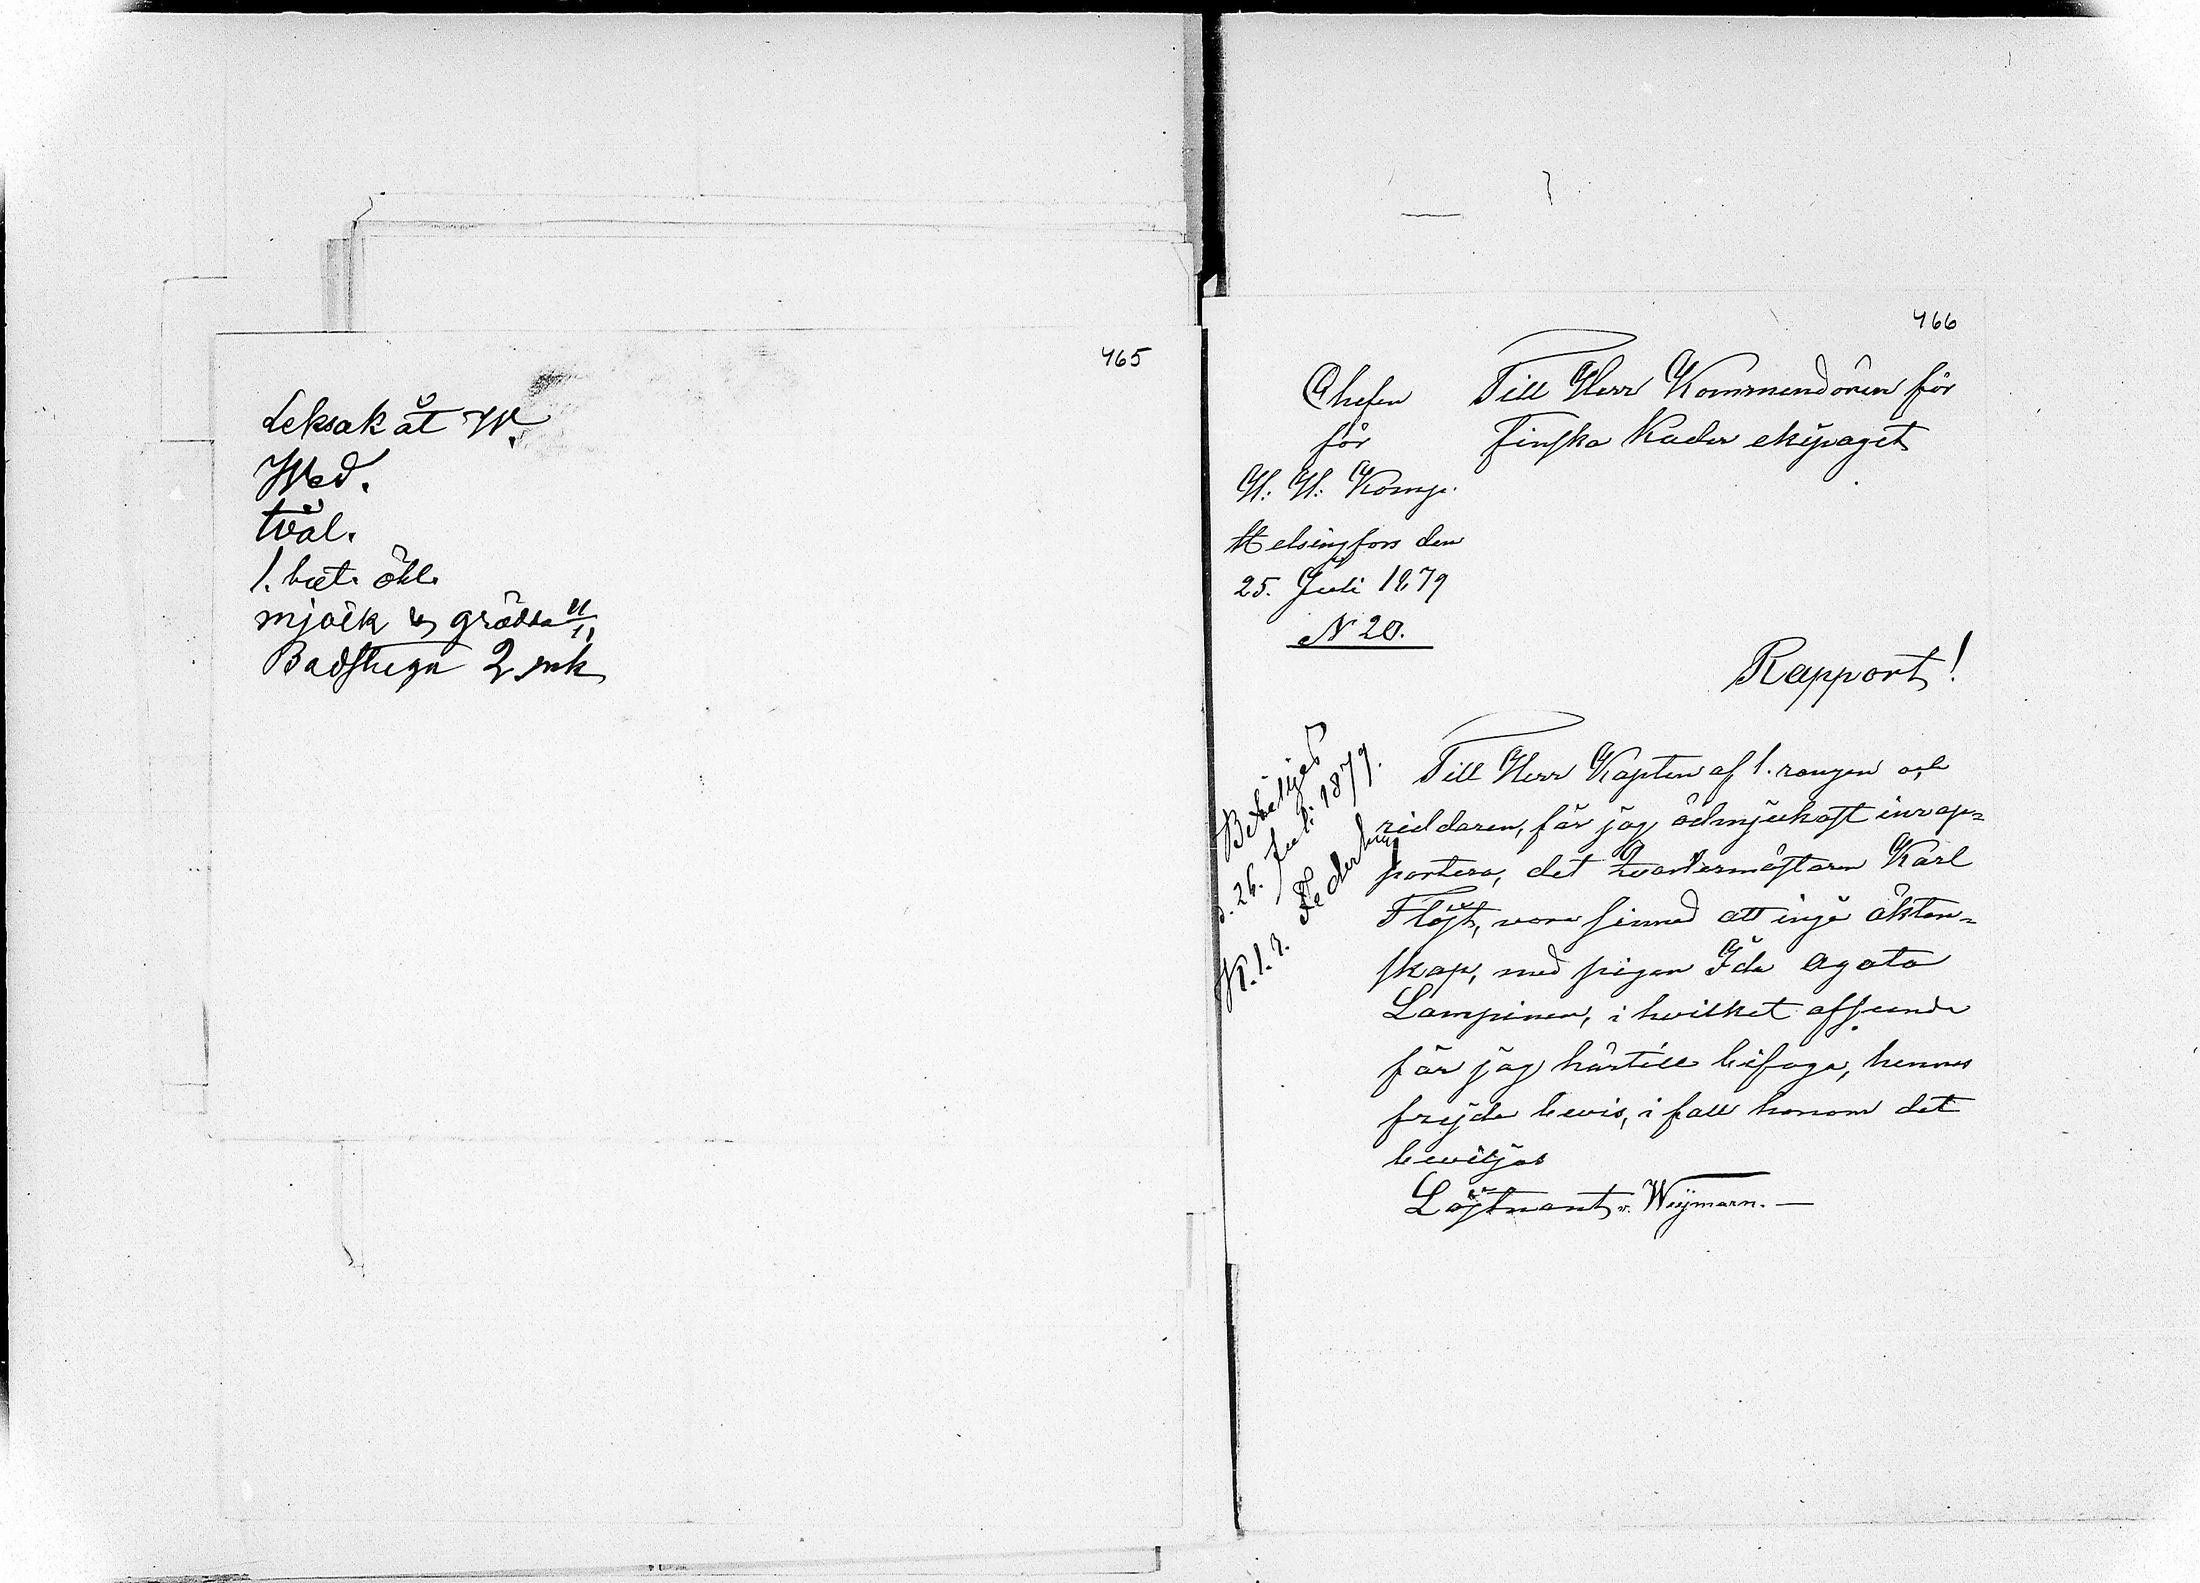 465
Leksak åt W.
Wed.
tvål.
1. but. öhl.
mjölk & grädda 11/11
Badstugn 2 mk
466
Chefen
för
H. H. Komp.
Helsingfors den
25. Juli 1879
N 20.
Till Herr Kommendören för
Finska Kader ekipaget
Rapport!
Beviljes
d. 26. Juli 1879.
K. 1. r.
Till Herr Kapten af 1. rangen och
riddaren, får jag ödmjukast inrap=
portera, det Qvartermästaren Karl
Flöjt, vore sinnad att ingå äkten=
skap, med pigan Ida Agata
Lampinen, i hvilket afseende
får jag härtill bifoga, hennes
frejde bevis, i fall honom det
beviljas
Löjtnant v. Weymarn. —